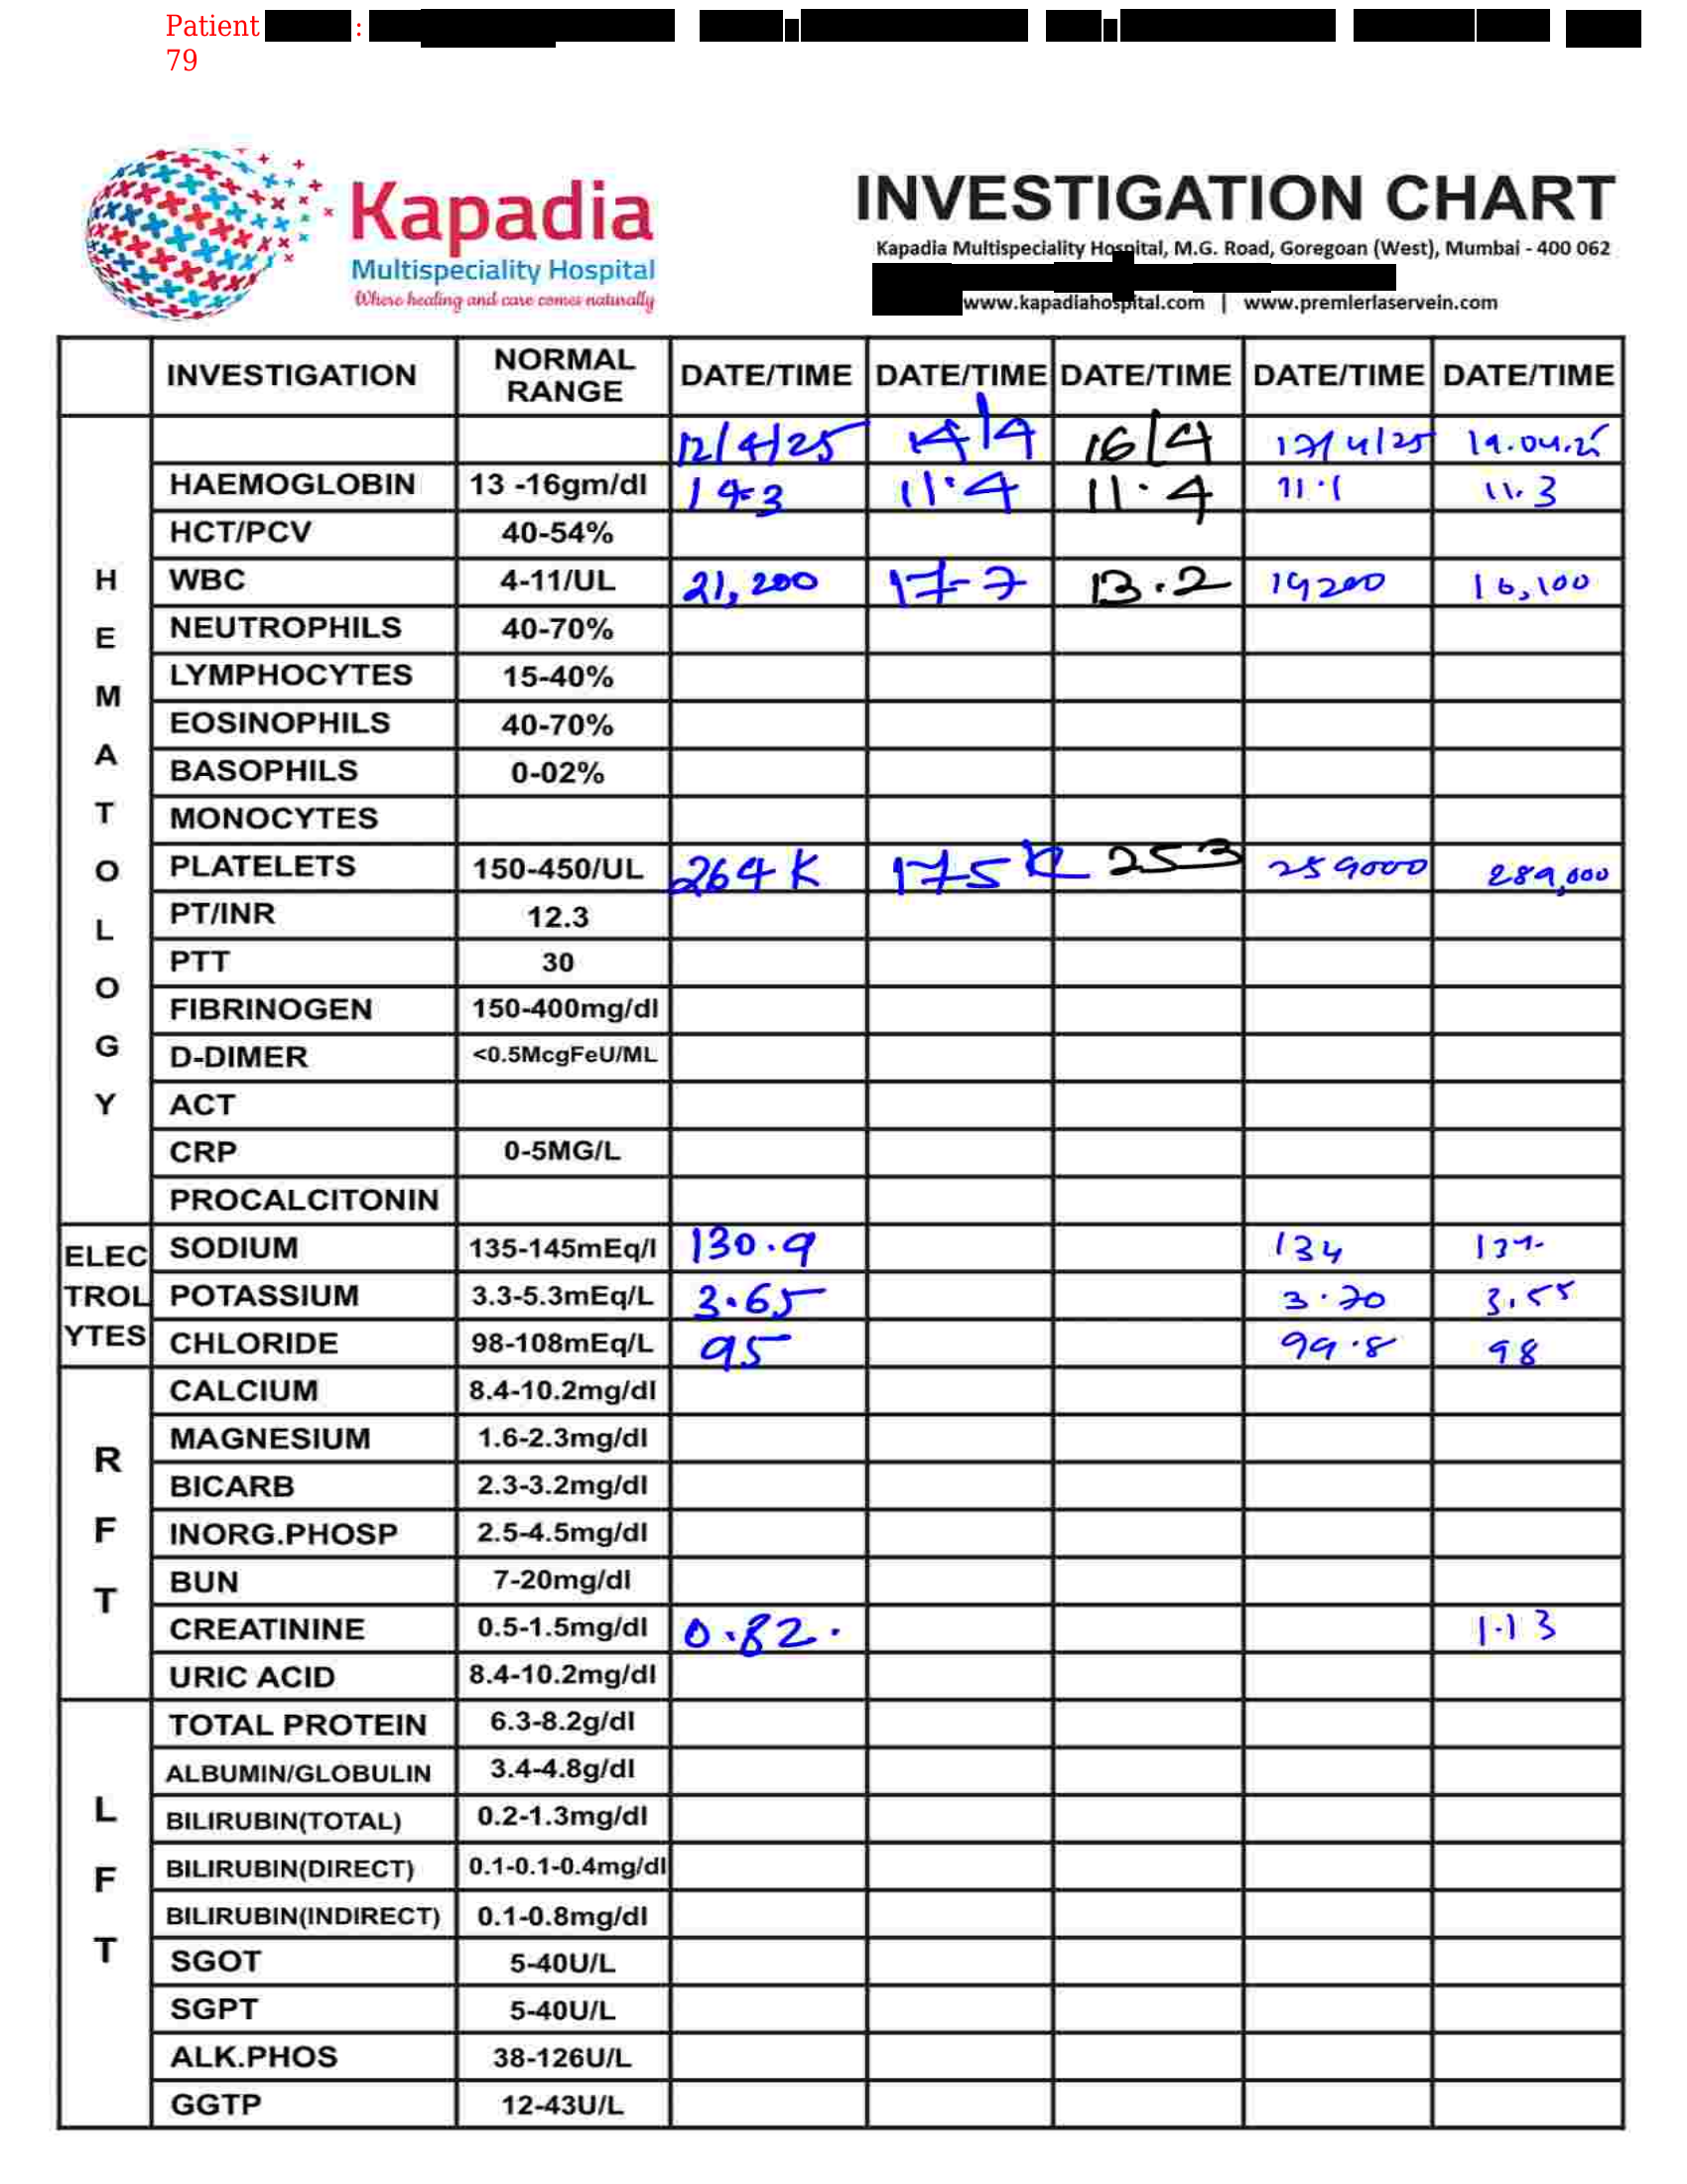 Patient :
79
Kapadia
Multispeciality Hospital
Where healing and care comes naturally
INVESTIGATION CHART
Kapadia Multispeciality Hospital, M.G. Road, Goregoan (West), Mumbai - 400 062
www.kapadiahospital.com | www.premierlaservein.com
INVESTIGATION NORMAL RANGE DATE/TIME DATE/TIME DATE/TIME DATE/TIME DATE/TIME
12/4/25 14/4 16/4 17/4/25 19.04.25
HEMATOLOGY
HAEMOGLOBIN 13 -16gm/dl 14.3 11.4 11.4 11.1 11.3
HCT/PCV 40-54%
WBC 4-11/UL 21,200 17.7 13.2 19200 16,100
NEUTROPHILS 40-70%
LYMPHOCYTES 15-40%
EOSINOPHILS 40-70%
BASOPHILS 0-02%
MONOCYTES
PLATELETS 150-450/UL 264K 175K 253 259000 289,000
PT/INR 12.3
PTT 30
FIBRINOGEN 150-400mg/dl
D-DIMER <0.5McgFeU/ML
ACT
CRP 0-5MG/L
PROCALCITONIN
ELECTROLYTES
SODIUM 135-145mEq/l 130.9 134
POTASSIUM 3.3-5.3mEq/L 3.65 3.70 3.55
CHLORIDE 98-108mEq/L 95 99.8 98
RFT
CALCIUM 8.4-10.2mg/dl
MAGNESIUM 1.6-2.3mg/dl
BICARB 2.3-3.2mg/dl
INORG.PHOSP 2.5-4.5mg/dl
BUN 7-20mg/dl
CREATININE 0.5-1.5mg/dl 0.82. 1.13
URIC ACID 8.4-10.2mg/dl
LFT
TOTAL PROTEIN 6.3-8.2g/dl
ALBUMIN/GLOBULIN 3.4-4.8g/dl
BILIRUBIN(TOTAL) 0.2-1.3mg/dl
BILIRUBIN(DIRECT) 0.1-0.1-0.4mg/dl
BILIRUBIN(INDIRECT) 0.1-0.8mg/dl
SGOT 5-40U/L
SGPT 5-40U/L
ALK.PHOS 38-126U/L
GGTP 12-43U/L